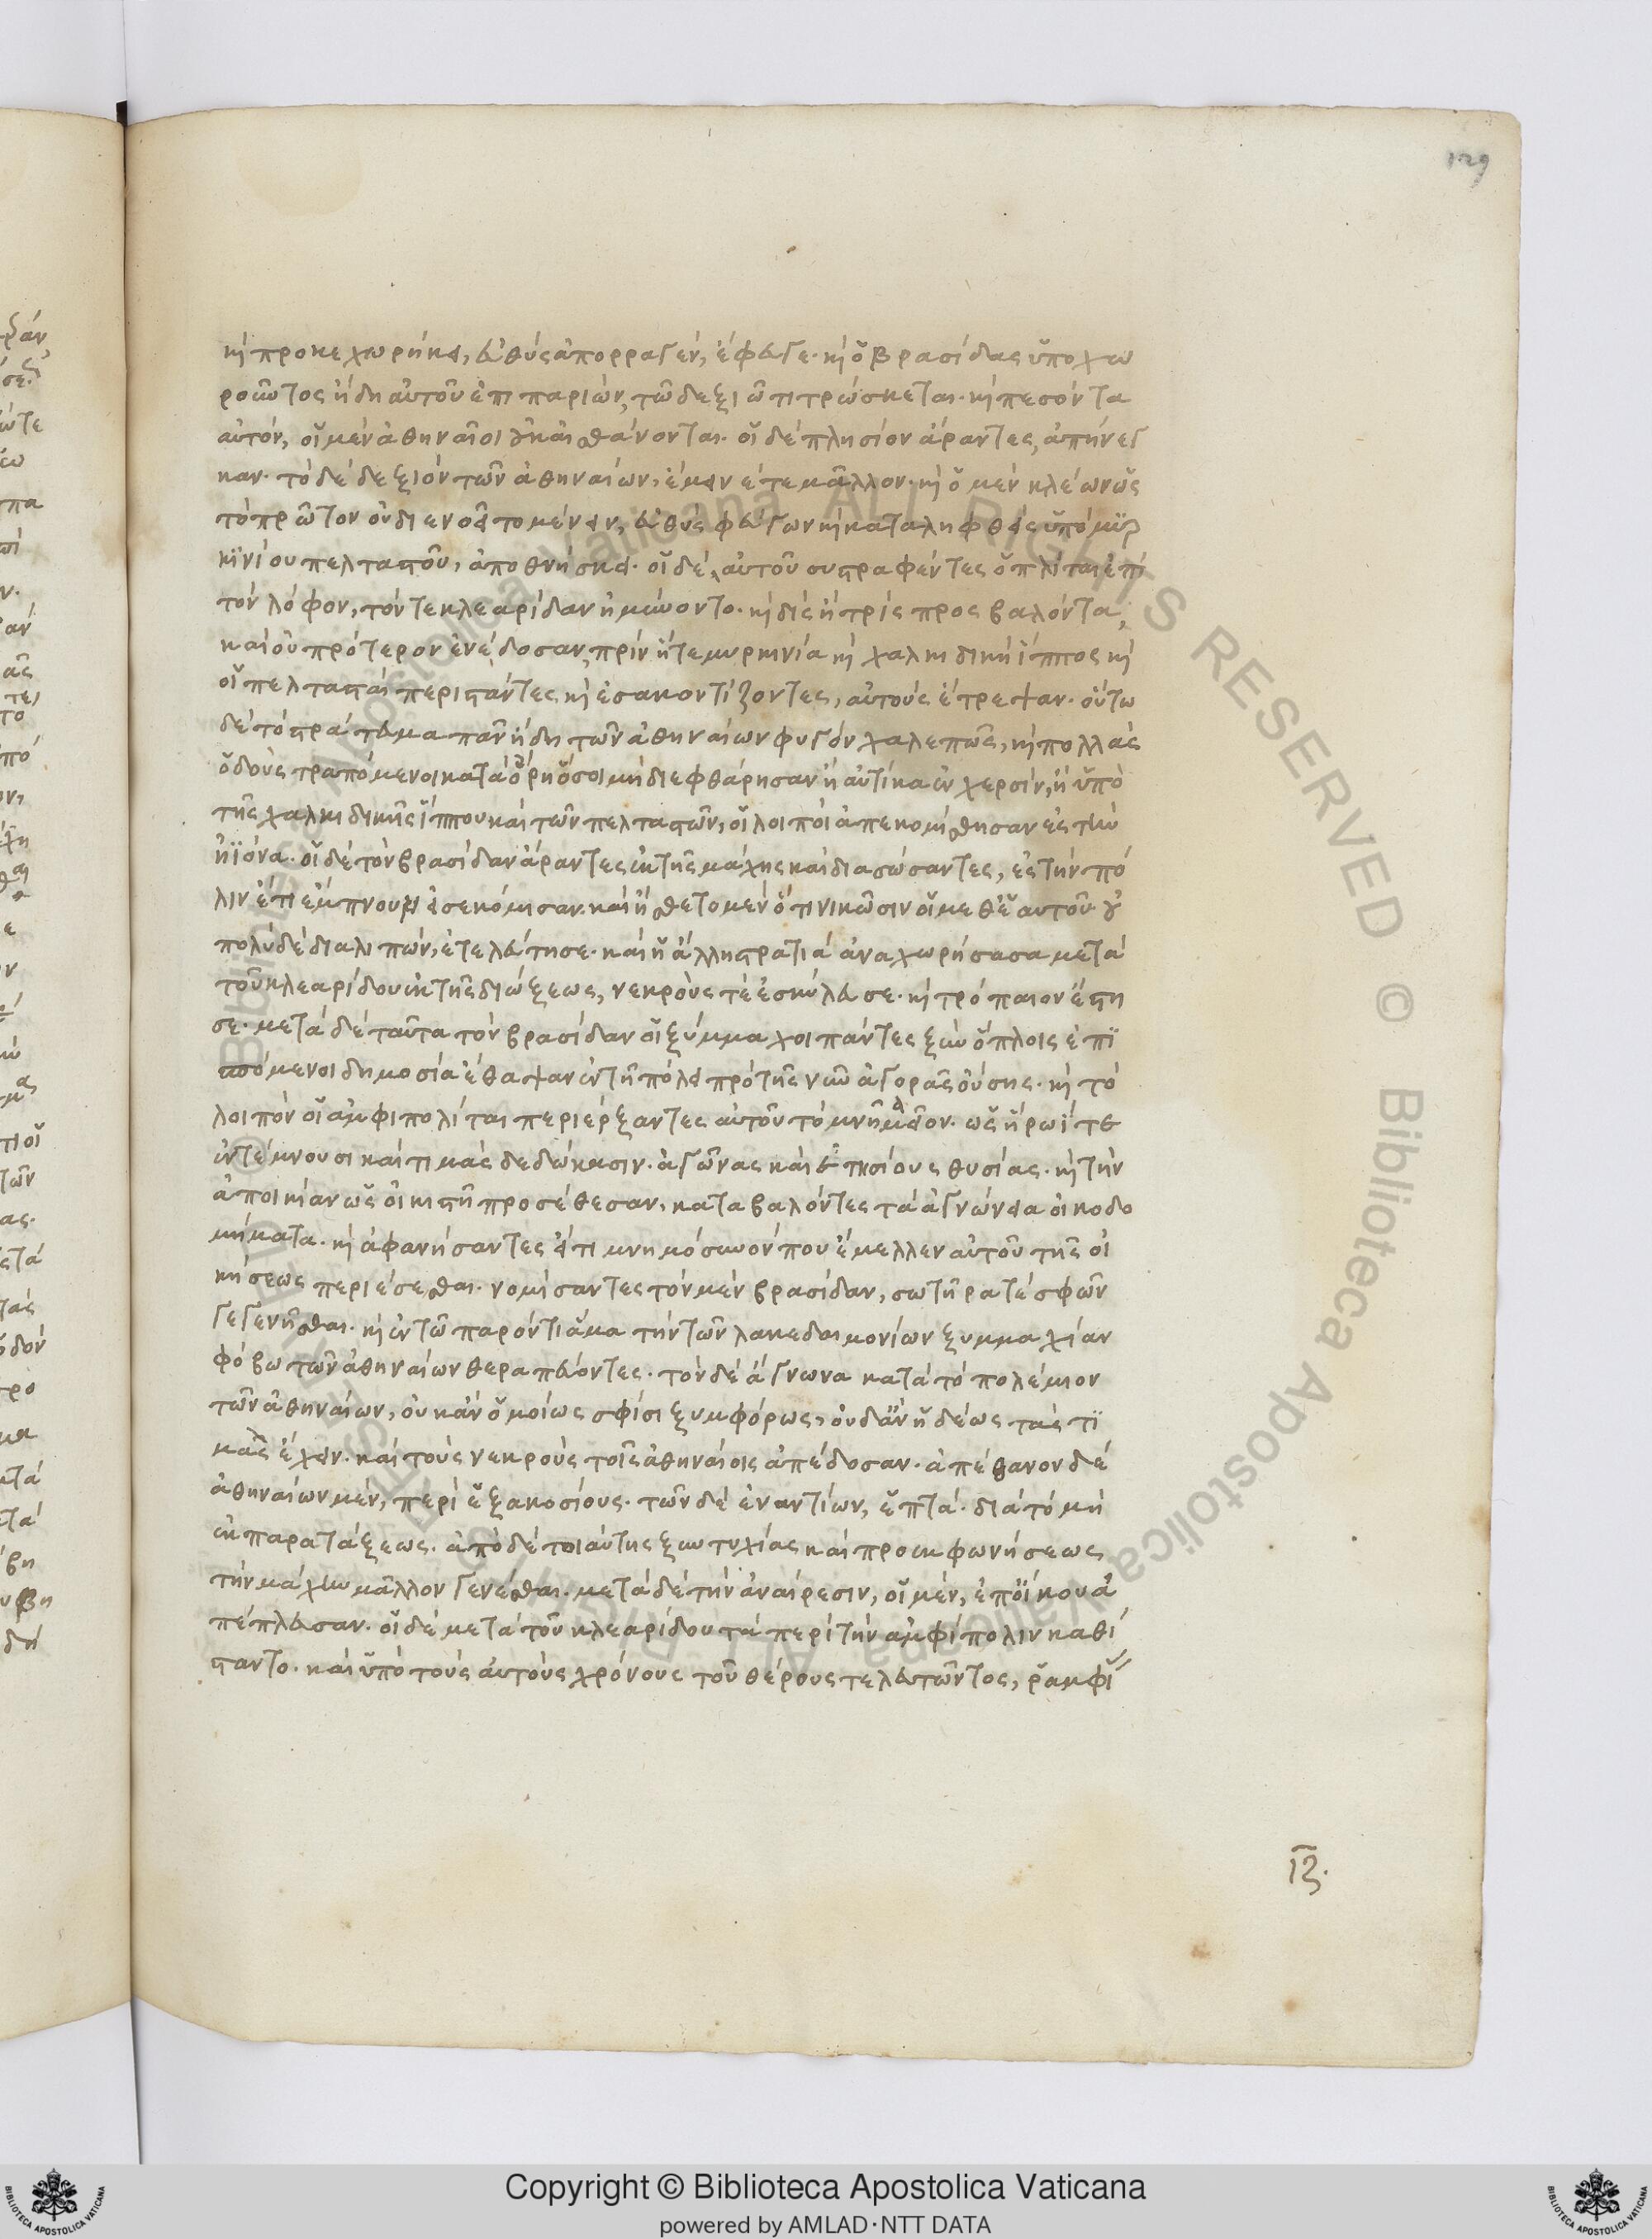 129
καὶ προκεχωρήκει, εὐθὺς ἀπορραγὲν, ἔφευγε. καὶ ὁ βρασίδας ὑποχω
ροῦντος ἤδη αὐτοῦ ἐπιπαριὼν, τῶ δεξιῶ τιτρώσκεται. καὶ πεσόντα
αὐτὸν, οἱ μὲν ἀθηναῖοι οὐκ αἰσθάνονται. οἱ δὲ πλησίον ἄραντες, ἀπήνεγ
καν. τὸ δὲ δεξιὸν τῶν ἀθηναίων, ἔμεινέ τε μᾶλλον. καὶ ὁ μὲν κλέων ὡς
τὸ πρῶτον οὐ διενοεῖτο μένειν, εὐθὺς φεύγων καὶ καταληφθεὶς ὑπὸ μυρ
κινίου πελταστοῦ, ἀποθνήσκει. οἱ δὲ, αὐτοῦ συστραφέντες ὁπλῖται ἐπὶ
τὸν λόφον, τόν τε κλεαρίδαν ἠμύνοντο. καὶ δὶς ἢ τρὶς προσβαλόντα,
καὶ οὐ πρότερον ἐνέδοσαν, πρὶν ἥ τε μυρκινία καὶ χαλκιδικὴ ἵππος καὶ
οἱ πελτασταὶ περιστάντες καὶ ἐσακοντίζοντες, αὐτοὺς ἔτρεψαν. οὕτω
δὲ τὸ στράτευμα πᾶν ἤδη τῶν ἀθηναίων φυγὸν χαλεπῶς, καὶ πολλὰς
ὁδοὺς τραπόμενοι κατὰ ὄρη ὅσοι μὴ διεφθάρησαν ἢ αὐτίκα ἐν χερσὶν, ἢ ὑπὸ
τῆς χαλκιδικῆς ἵππου καὶ τῶν πελταστῶν, οἱ λοιποὶ ἀπεκομίσθησαν ἐς τὴν
ἠϊόνα. οἱ δὲ τὸν βρασίδαν ἄραντες ἐκ τῆς μάχης καὶ διασώσαντες, ἐς τὴν πό
λιν ἔτι ἔμπνουν ἐσεκόμισαν. καὶ ἤσθετο μὲν ὅτι νικῶσιν οἱ μεθ' ἑαυτοῦ. οὐ
πολὺ δὲ διαλιπὼν, ἐτελεύτησε. καὶ ἡ ἄλλη στρατιὰ ἀναχωρήσασα μετὰ
τοῦ κλεαρίδου ἐκ τῆς διώξεως, νεκρούς τὲ ἐσκύλευσε. καὶ τρόπαιον ἔστη
σε. μετὰ δὲ ταῦτα τὸν βρασίδαν οἱ ξύμμαχοι πάντες ξὺν ὅπλοις ἐπι
σπόμενοι δημοσία ἔθαψαν ἐν τῆ πόλει πρὸ τῆς νῦν ἀγορᾶς οὔσης. καὶ τὸ
λοιπὸν οἱ ἀμφιπολῖται περιέρξαντες αὐτοῦ τὸ μνημεῖον. ὡς ἥρωΐ τε
ἐντέμνουσι καὶ τιμὰς δεδώκασιν. ἀγῶνας καὶ ἐτησίους θυσίας. καὶ τὴν
ἀποικίαν ὡς οἰκιστῆ προσέθεσαν, καταβαλόντες τὰ ἁγνώνεια οἰκοδο
μήματα. καὶ ἀφανήσαντες εἴ τι μνημόσυνόν που ἔμελλεν αὐτοῦ τῆς οἰ
κήσεως περιέσεσθαι. νομίσαντες τὸν μὲν βρασίδαν, σωτῆρα τὲ σφῶν
γεγενῆσθαι. καὶ ἐν τῶ παρόντι ἅμα τὴν τῶν λακεδαιμονίων ξυμμαχίαν
φόβω τῶν ἀθηναίων θεραπεύοντες. τὸν δὲ ἅγνωνα κατὰ τὸ πολέμιον
τῶν ἀθηναίων, οὐκ ἂν ὁμοίως σφίσι ξυμφόρως, οὐδ' ἂν ἡδέως τὰς τι
μὰς ἔχειν. καὶ τοὺς νεκροὺς τοῖς ἀθηναίοις ἀπέδοσαν. ἀπέθανον δὲ
ἀθηναίων μὲν, περὶ ἑξακοσίους. τῶν δὲ ἐναντίων, ἑπτά. διὰ τὸ μὴ
ἐκ παρατάξεως. ἀπὸ δὲ τοιαύτης ξυντυχίας καὶ προεκφωνήσεως
τὴν μάχην μᾶλλον γενέσθαι. μετὰ δὲ τὴν ἀναίρεσιν, οἱ μὲν, ἐπ' οἴκου ἀ
πέπλευσαν. οἱ δὲ μετὰ τοῦ κλεαρίδου τὰ περὶ τὴν ἀμφίπολιν καθί
σταντο. καὶ ὑπὸ τοὺς αὐτοὺς χρόνους τοῦ θέρους τελευτῶντος, ῥαμφί
ιζ.
Copyright © Biblioteca Apostolica Vaticana
powered by AMLAD·NTT DATA